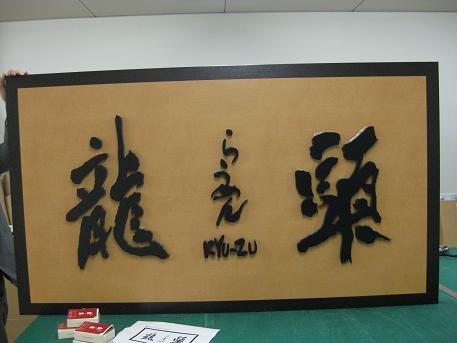 龍
らうめん
RYU-ZU
頭